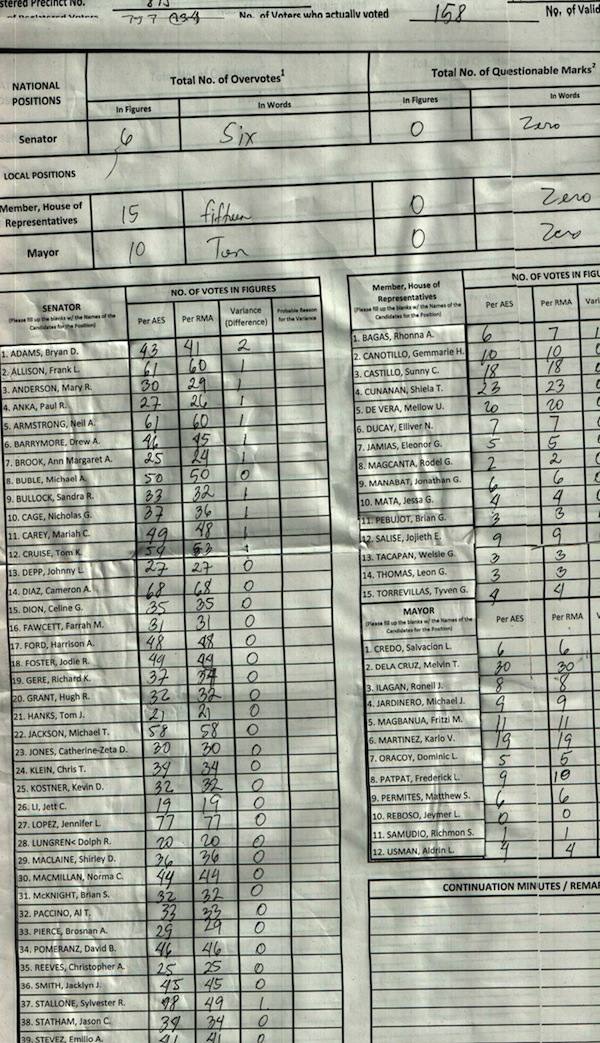 stered Precinct No.
No. of Voters who actually voted 158 No. of Valid
NATIONAL POSITIONS
Total No. of Overvotes1
Total No. of Questionable Marks2
In Figures In Words In Figures In Words
Senator 6 Six 0 Zero
LOCAL POSITIONS
Member, House of Representatives 15 fifteen 0 Zero
Mayor 10 Ten 0 Zero
SENATOR
(Please fill up the blanks w/ the Names of the Candidates for the Position)
NO. OF VOTES IN FIGURES
Per AES Per RMA Variance (Difference) Probable Reason for the Variance
1. ADAMS, Bryan D. 43 41 2
2. ALLISON, Frank L. 61 60 1
3. ANDERSON, Mary R. 30 29 1
4. ANKA, Paul R. 27 26 1
5. ARMSTRONG, Neil A. 61 60 1
6. BARRYMORE, Drew A. 46 45 1
7. BROOK, Ann Margaret A. 25 24 1
8. BUBLE, Michael A. 50 50 0
9. BULLOCK, Sandra R. 33 32 1
10. CAGE, Nicholas G. 37 36 1
11. CAREY, Mariah C. 49 48 1
12. CRUISE, Tom K. 53
13. DEPP, Johnny L. 27 27 0
14. DIAZ, Cameron A. 68 68 0
15. DION, Celine G. 35 35 0
16. FAWCETT, Farrah M. 31 31 0
17. FORD, Harrison A. 48 48 0
18. FOSTER, Jodie R. 49 49 0
19. GERE, Richard K. 37 0
20. GRANT, Hugh R. 32 32 0
21. HANKS, Tom J. 21 21 0
22. JACKSON, Michael T. 58 58 0
23. JONES, Catherine-Zeta D. 30 30 0
24. KLEIN, Chris T. 34 34 0
25. KOSTNER, Kevin D. 32 32 0
26. LI, Jett C. 19 19 0
27. LOPEZ, Jennifer L. 77 77 0
28. LUNGREN< Dolph R. 20 20 0
29. MACLAINE, Shirley D. 36 36 0
30. MACMILLAN, Norma C. 44 44 0
31. McKNIGHT, Brian S. 32 32 0
32. PACCINO, Al T. 33 33 0
33. PIERCE, Brosnan A. 29 29 0
34. POMERANZ, David B. 46 46 0
35. REEVES, Christopher A. 25 25 0
36. SMITH, Jacklyn J. 45 45 0
37. STALLONE, Sylvester R. 49 1
38. STATHAM, Jason C. 34 34 0
39. STEVEZ, Emilio A. 41 41 0
Member, House of Representatives
(Please fill up the blanks w/ the Names of the Candidates for the Position)
NO. OF VOTES IN FIGU
Per AES Per RMA Vari
1. BAGAS, Rhonna A. 6 7 1
2. CANOTILLO, Gemmarie H. 10 10 0
3. CASTILLO, Sunny C. 18 18 0
4. CUNANAN, Shiela T. 23 23 0
5. DE VERA, Mellow U. 20 20 0
6. DUCAY, Elliver N. 7 7 0
7. JAMIAS, Eleonor G. 5 5 0
8. MAGCANTA, Rodel G. 2 2 0
9. MANABAT, Jonathan G. 6 6 0
10. MATA, Jessa G. 4 4 0
11. PEBUJOT, Brian G. 3 3
12. SALISE, Jojieth E. 9 9
13. TACAPAN, Welsie G. 3 3
14. THOMAS, Leon G. 3 3
15. TORREVILLAS, Tyven G. 4 4
MAYOR
(Please fill up the blanks w/ the Names of the Candidates for the Position)
Per AES Per RMA V
1. CREDO, Salvacion L. 6 6
2. DELA CRUZ, Melvin T. 30 30
3. ILAGAN, Ronell J. 8 8
4. JARDINERO, Michael J. 9 9
5. MAGBANUA, Fritzi M. 11 11
6. MARTINEZ, Karlo V. 19 19
7. ORACOY, Dominic L. 5 5
8. PATPAT, Frederick L. 9 10
9. PERMITES, Matthew S. 6 6
10. REBOSO, Jeymer L. 0 0
11. SAMUDIO, Richmon S. 1 1
12. USMAN, Aldrin L. 4 4
CONTINUATION MINUTES / REMAR